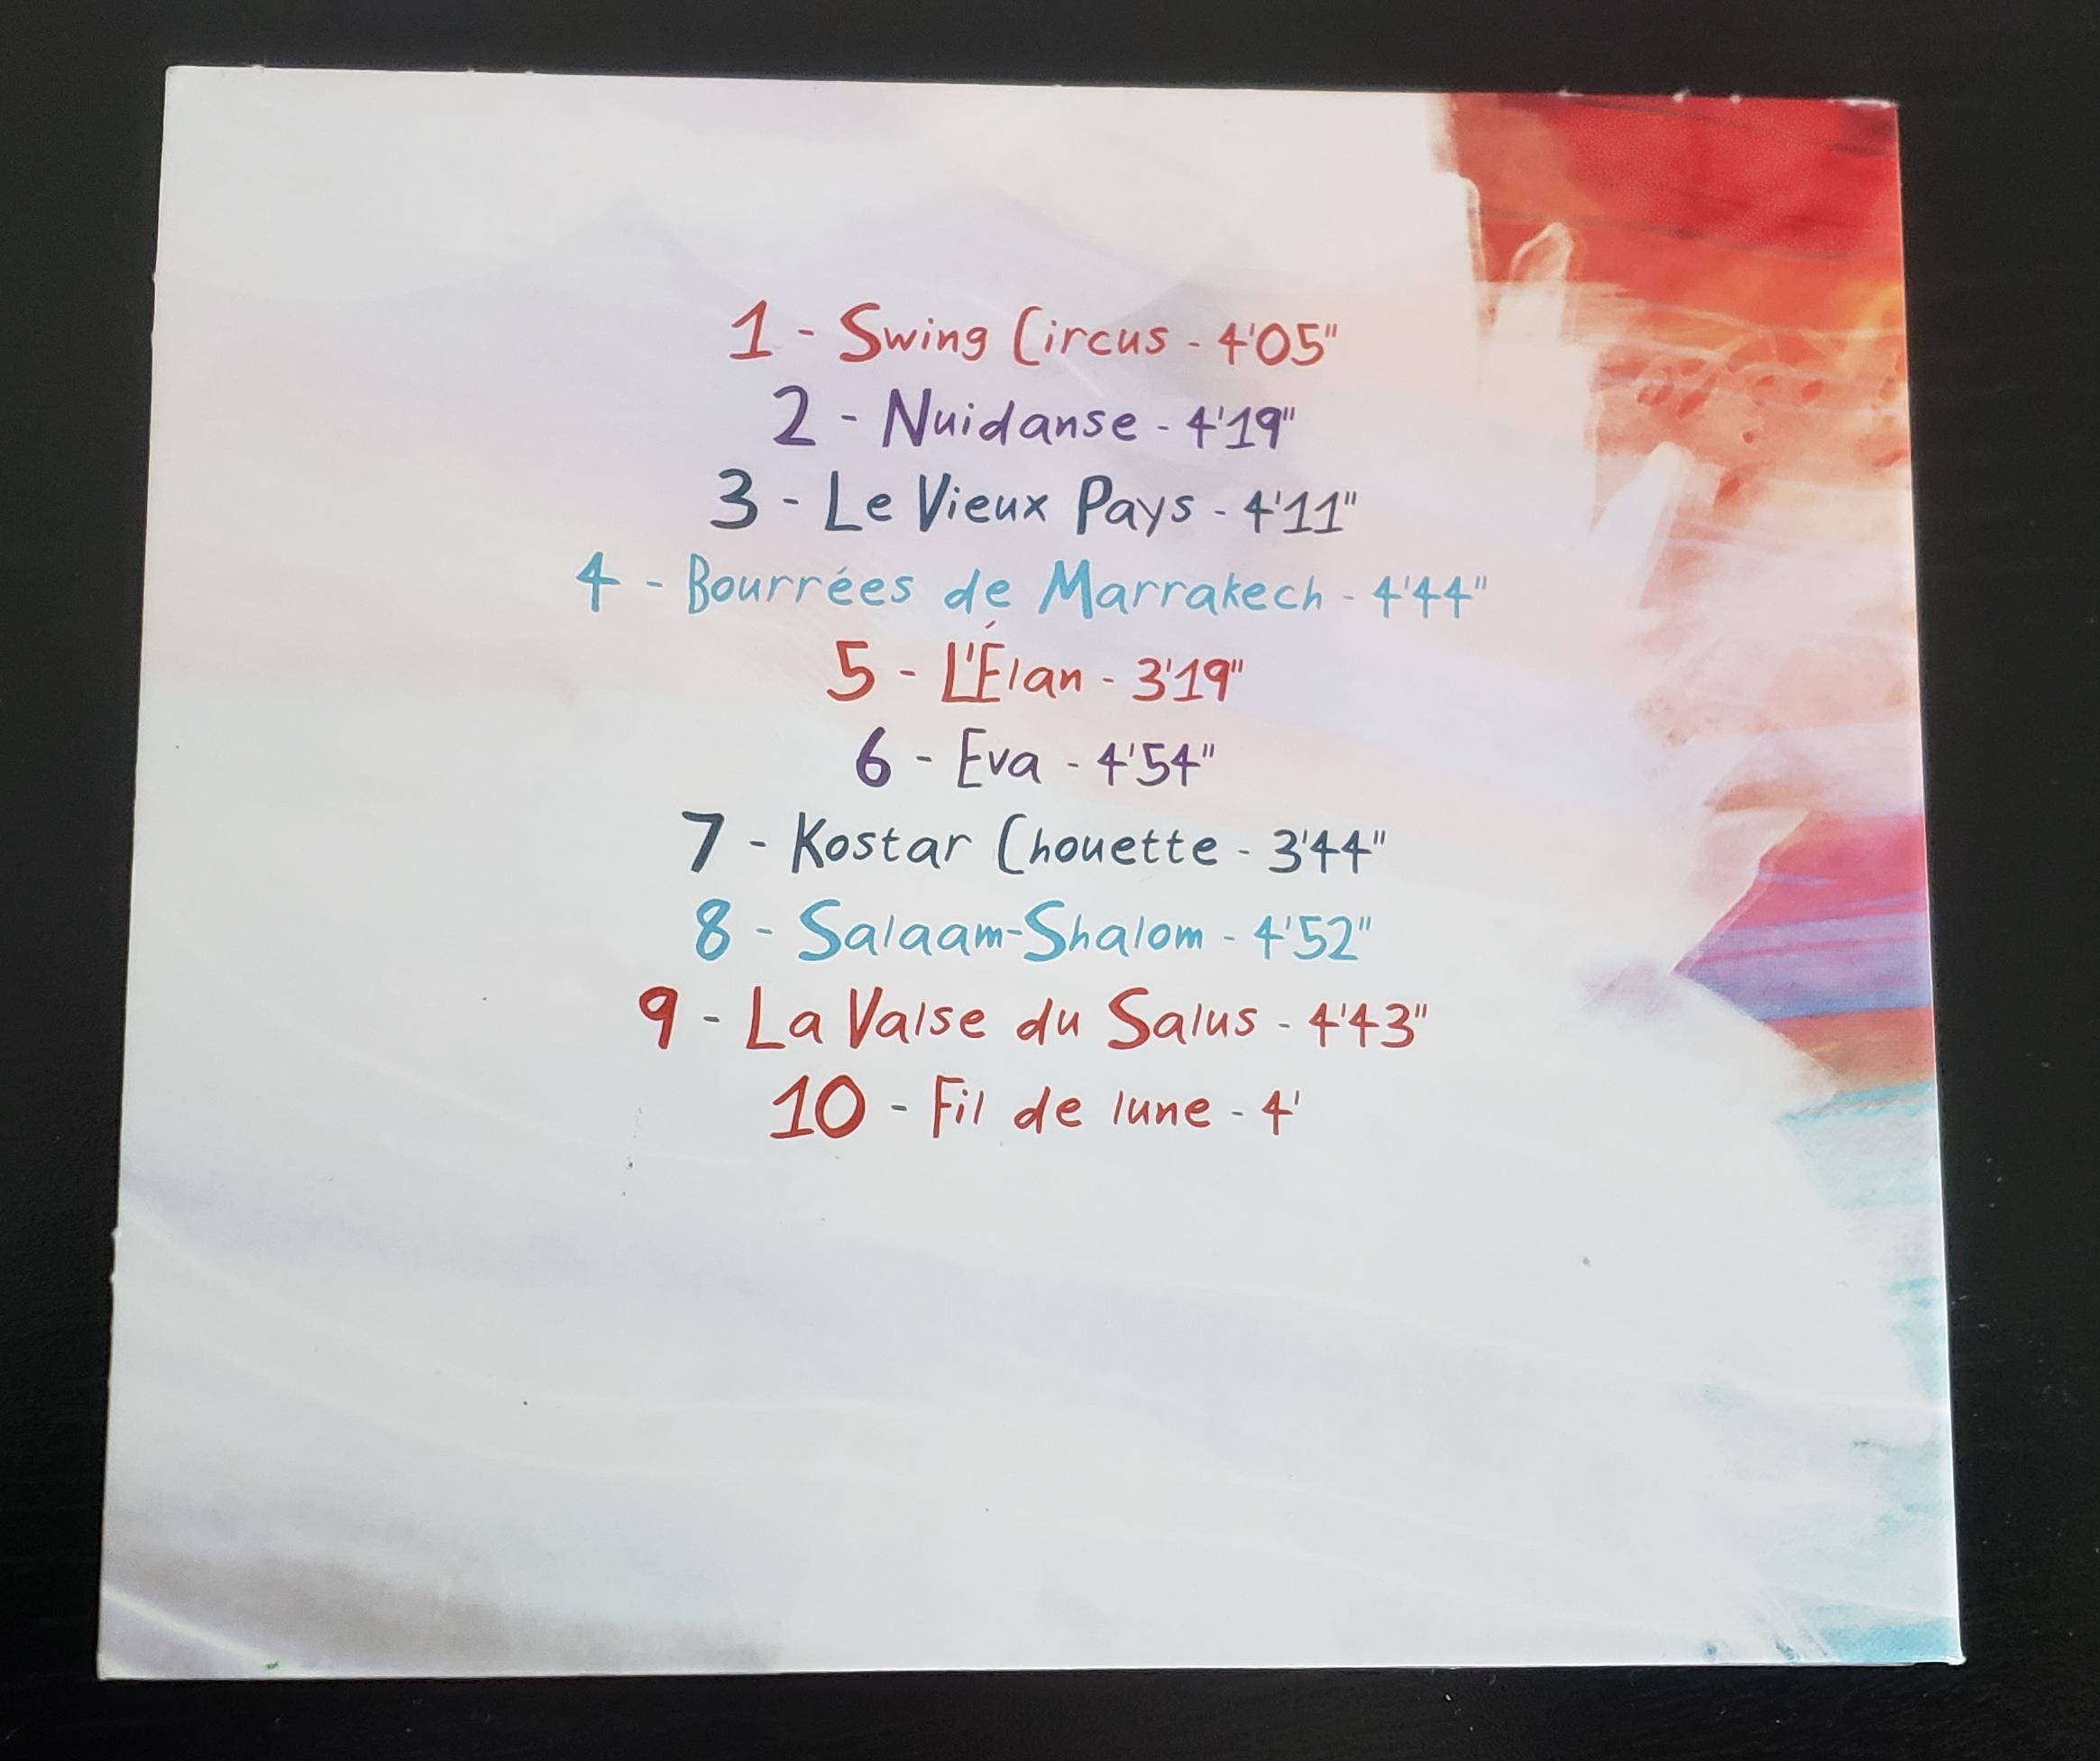 1 - Swing Circus - 4'05"
2 - Nuidanse - 4'19"
3 - Le Vieux Pays - 4'11"
4 - Bourrées de Marrakech - 4'44"
5 - L'Élan - 3'19"
6 - Eva - 4'54"
7 - Kostar Chouette - 3'44"
8 - Salaam-Shalom - 4'52"
9 - La Valse du Salus - 4'43"
10 - Fil de lune - 4'